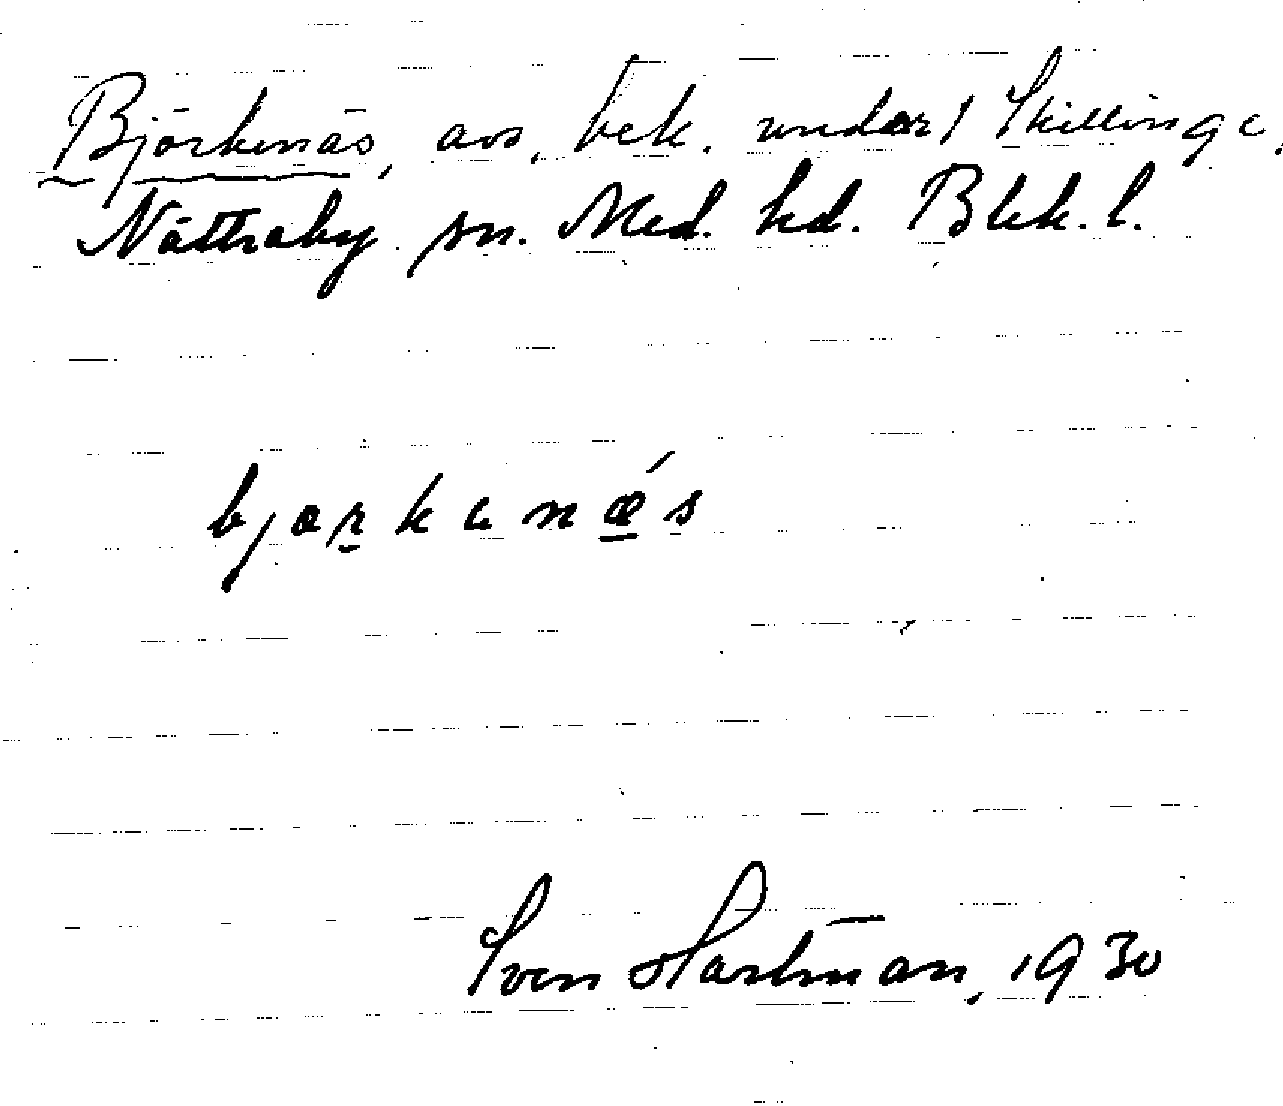 Björkenäs, avs. bek. under 1 Skillinge,
Nättraby sn. Med. hd. Blek. l.
bj kenæ´s
Sven Hartman, 1930